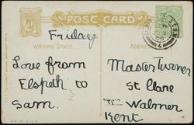 POST CARD
Friday
Love from
Elspeth to
Sam.
Master Turner
St Clare
Walmer
Kent